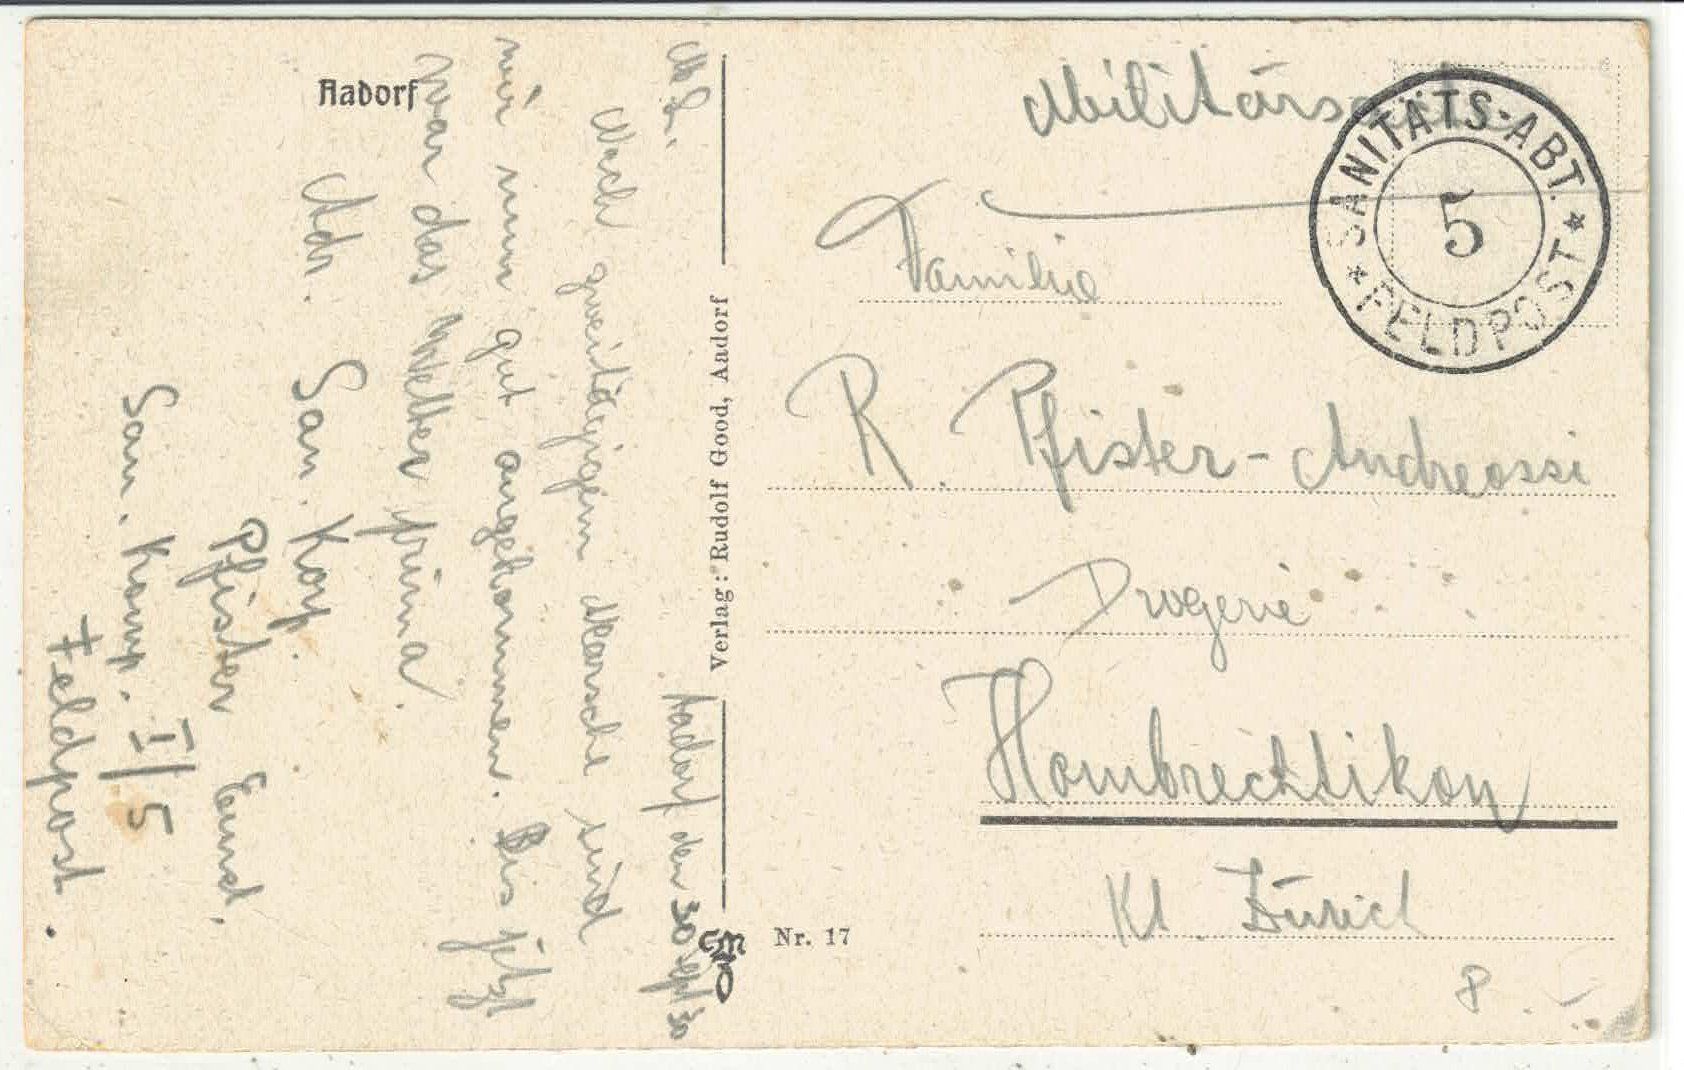 Aadorf
Aadorf den 30. Sept 30
M. L.
Nach zweitägigem Marsche sind
wir nun gut angekommen. Bis jetzt
war das Wetter prima.
Adr. San. Korp.
Pfister Ernst.
San. Komp. I/5
Feldpost.
Verlag: Rudolf Good, Aadorf
Nr. 17
SANITÄTS-ABT.
5
* FELDPOST *
Familie
R. Pfister-Andreossi
Drogerie
Hombrechtikon
Kt. Zürich
8